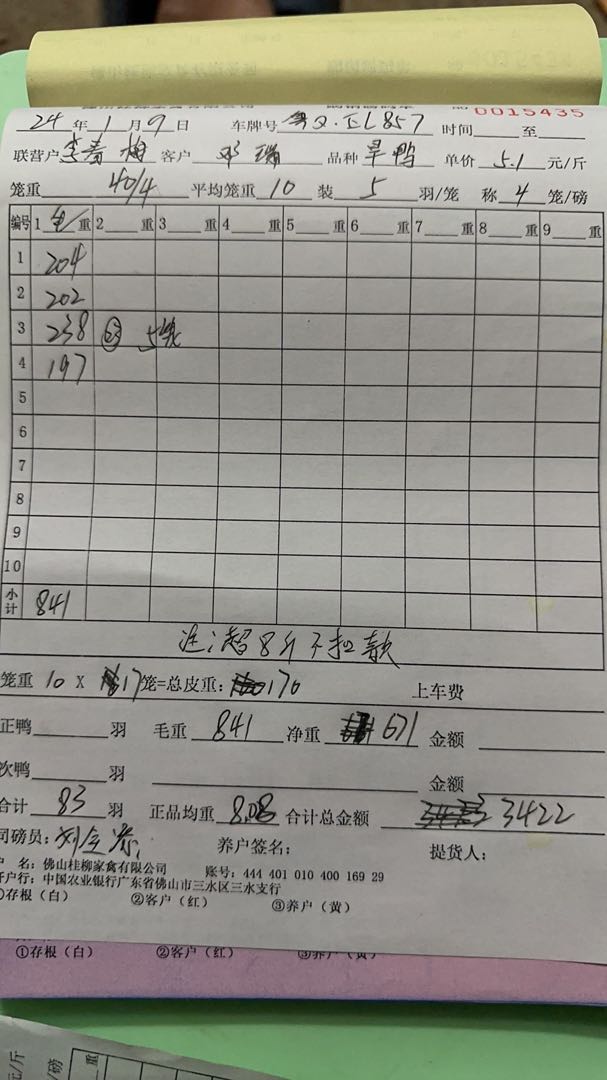 0015435
24 年 1 月 9 日 车牌号 L857 时间 至
联营户 李青梅 客户 邓瑞 品种 旱鸭 单价 5.1 元/斤
笼重 40/4 平均笼重 10 装 5 羽/笼 称 4 笼/磅
编号 1 重 2 重 3 重 4 重 5 重 6 重 7 重 8 重 9 重
1 204
2 202
3 238 5笼
4 197
5
6
7
8
9
10
小计 841
注:超8斤不扣款
笼重 10 X 17 笼=总皮重: 170 上车费
正鸭 羽 毛重 841 净重 671 金额
次鸭 羽 金额
合计 83 羽 正品均重 8.08 合计总金额 3422
司磅员: 养户签名: 提货人:
户 名: 佛山桂柳家禽有限公司 账号: 444 401 010 400 169 29
开户行: 中国农业银行广东省佛山市三水区三水支行
①存根(白) ②客户(红) ③养户(黄)
①存根(白) ②客户(红) ③养户(黄)
元/斤
/磅
重